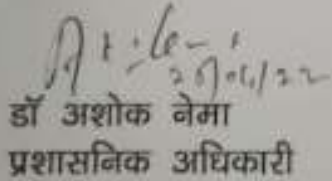 डॉ अशोक नेमा
प्रशासनिक अधिकारी